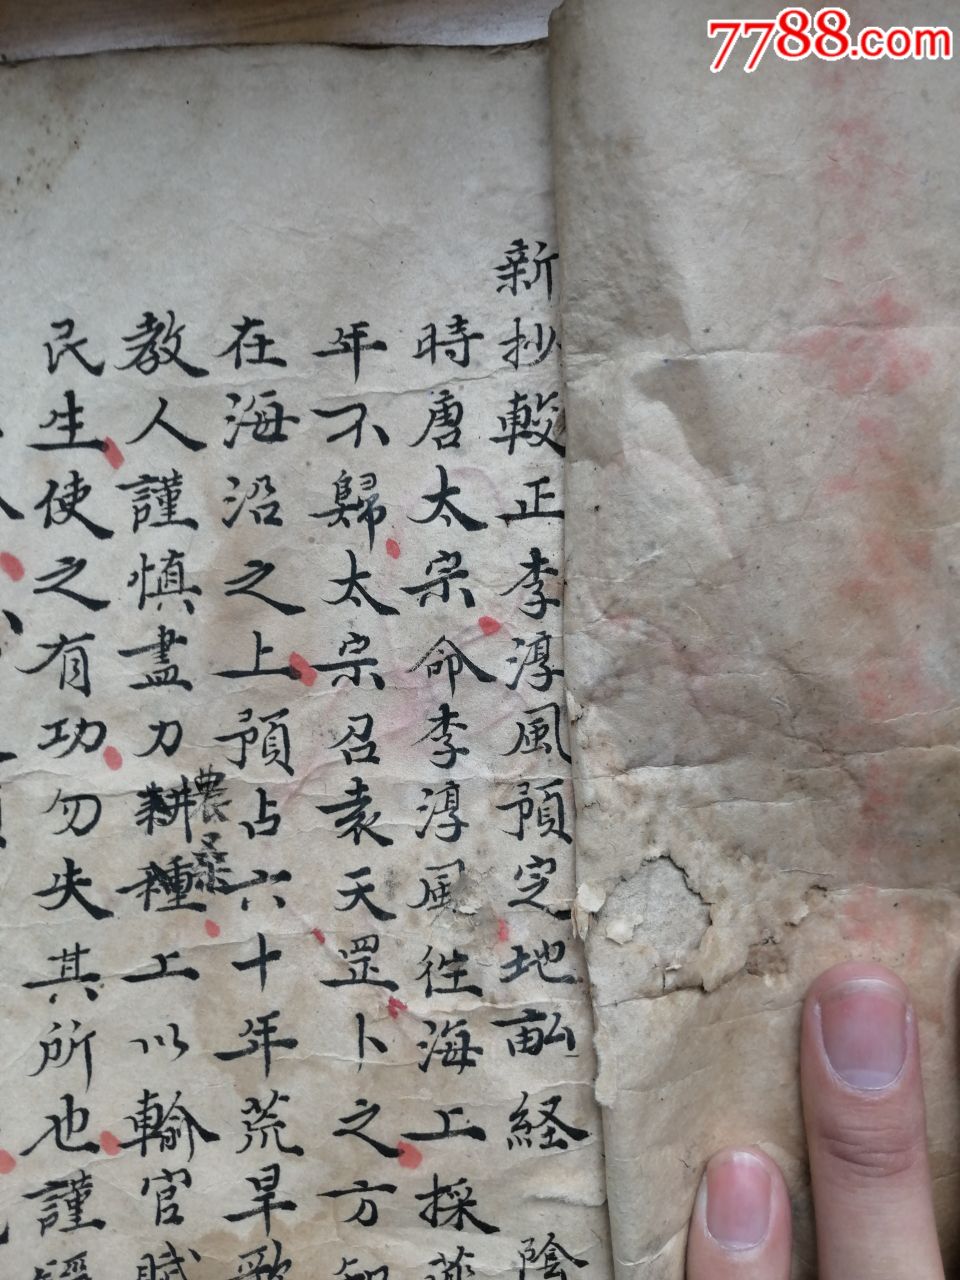 7788.com
新抄較正李淳風預定地畝経 陰
時唐太宗命李淳風徃海上採
年不歸太宗召袁天罡卜之方知
在海沿之上預占六十年荒旱歌
教人謹慎盡力耕種工以輸官賦
農桑
民生使之有功勿失其所也謹